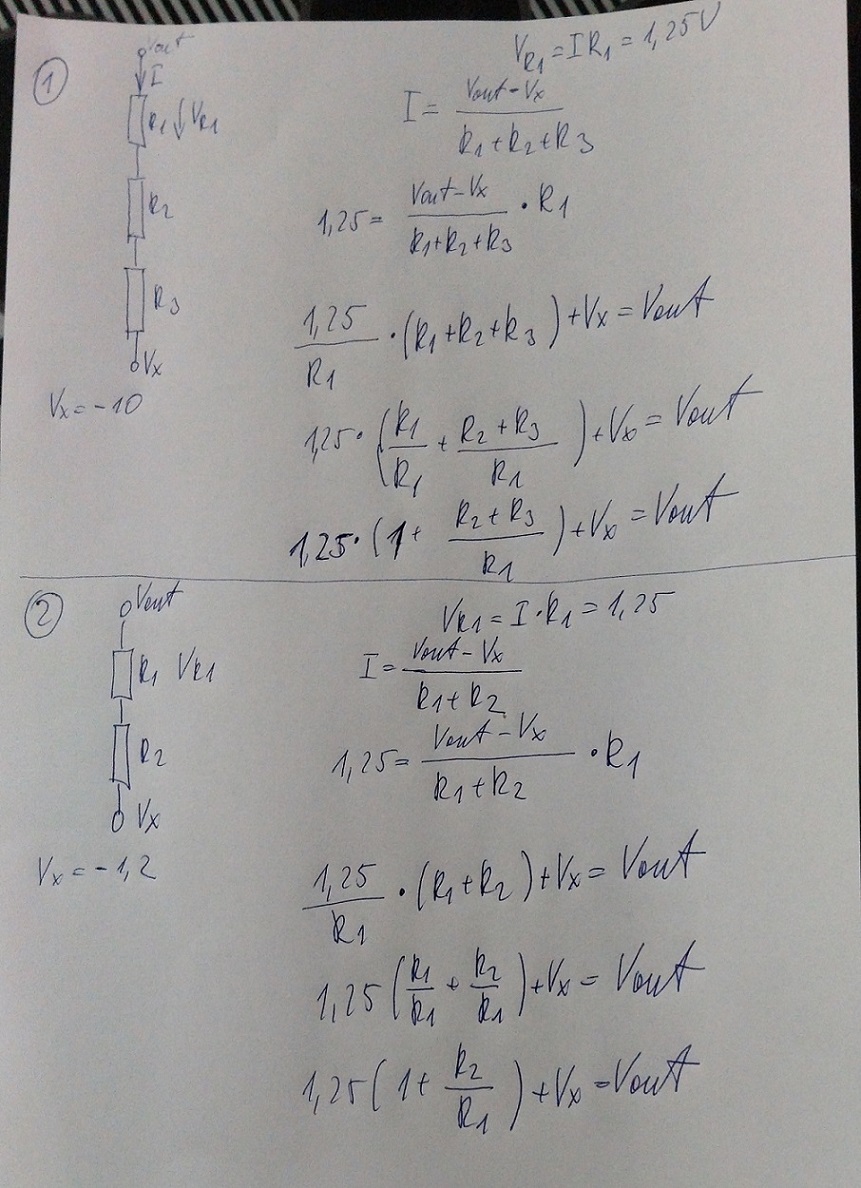 1
Vout
I
R1 VR1
R2
R3
Vx
Vx = -10
VR1 = I R1 = 1,25V
I = (Vout - Vx) / (R1 + R2 + R3)
1,25 = (Vout - Vx) / (R1 + R2 + R3) · R1
1,25 / R1 · (R1 + R2 + R3) + Vx = Vout
1,25 · (R1 / R1 + (R2 + R3) / R1) + Vx = Vout
1,25 · (1 + (R2 + R3) / R1) + Vx = Vout
2
Vout
R1 VR1
R2
Vx
Vx = -1,2
VR1 = I · R1 = 1,25
I = (Vout - Vx) / (R1 + R2)
1,25 = (Vout - Vx) / (R1 + R2) · R1
1,25 / R1 · (R1 + R2) + Vx = Vout
1,25 (R1 / R1 + R2 / R1) + Vx = Vout
1,25 (1 + R2 / R1) + Vx = Vout